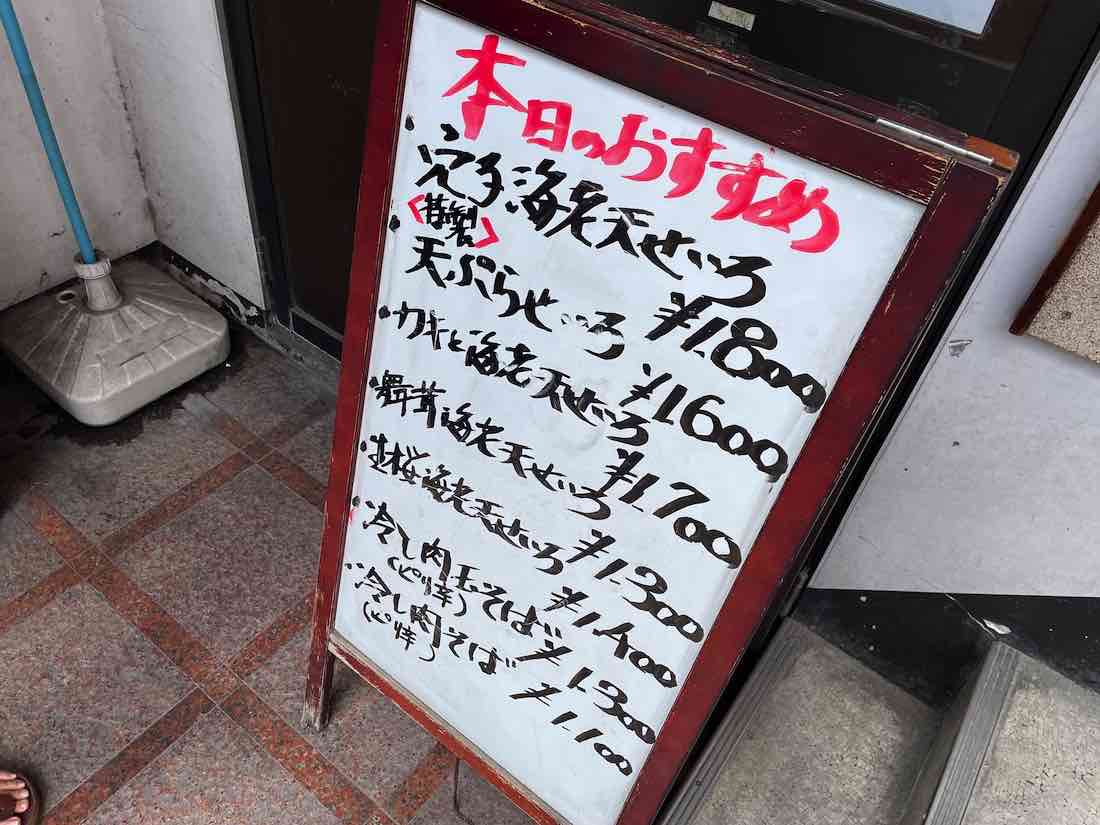 本日のおすすめ
・穴子海老天せいろ ¥1.800
〈特製〉
・天ぷらせいろ ¥1600
・カキと海老天せいろ ¥1.700
・舞茸海老天せいろ ¥1.300
・生桜海老天せいろ ¥1400
・冷し肉玉そば ¥1.300
(ピリ辛)
・冷し肉そば ¥1.100
(ピリ辛)